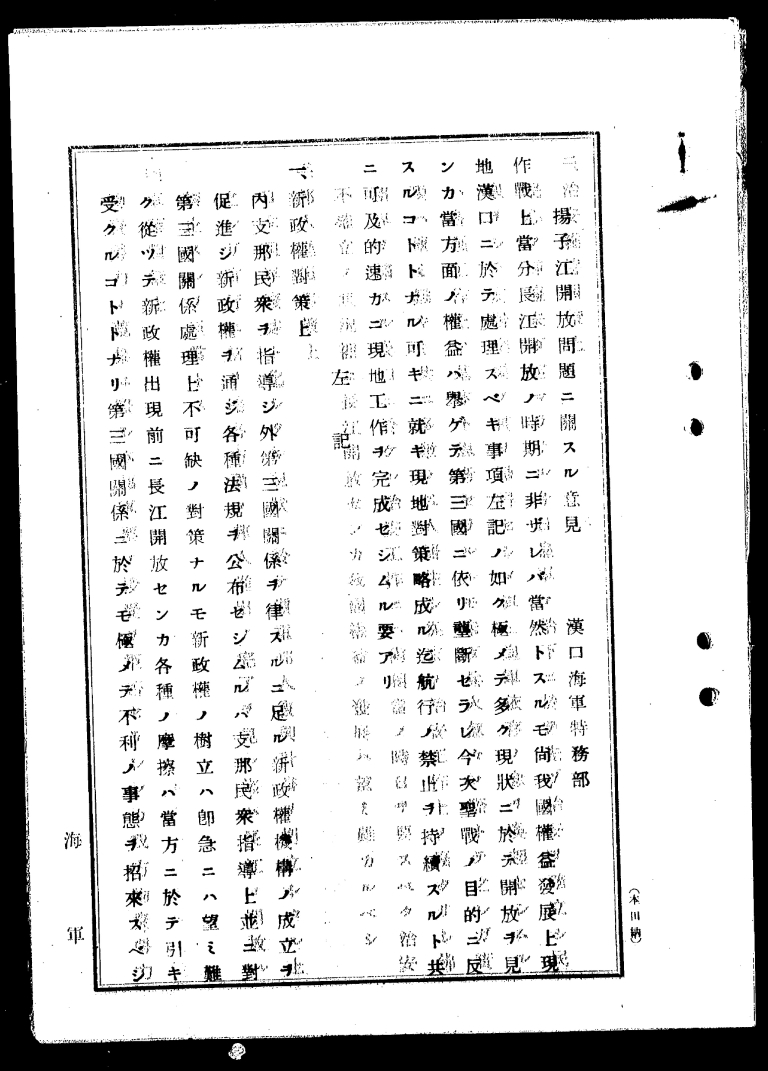 揚子江開放問題ニ關スル意見
漢口海軍特務部
作戰上當分長江開放ノ時期ニ非ザレバ當然トスルモ尚我國權益發展上現
地漢口ニ於テ處理スベキ事項左記ノ如ク極メテ多ク現狀ニ於テ開放ヲ見
ンカ當方面ノ權益ハ擧ゲテ第三國ニ依リ壟斷セラレ今次聖戰ノ目的ニ反
スルコトトナル可キニ就キ現地對策略成ル迄航行ノ禁止ヲ持續スルト共
ニ可及的速カニ現地工作ヲ完成セシムル要アリ
左記
一、新政權對策上
內支那民衆ヲ指導シ外第三國關係ヲ律スルニ足ル新政權機構ノ成立ヲ
促進シ新政權ヲ通ジ各種法規ヲ公布セシムルハ支那民衆指導上並ニ對
第三國關係處理上不可缺ノ對策ナルモ新政權ノ樹立ハ卽急ニハ望ミ難
ク從ツテ新政權出現前ニ長江開放センカ各種ノ摩擦ハ當方ニ於テ引キ
受クルコトトナリ第三國關係ニ於テモ極メテ不利ノ事態ヲ招來スベシ
海軍
(本田納)